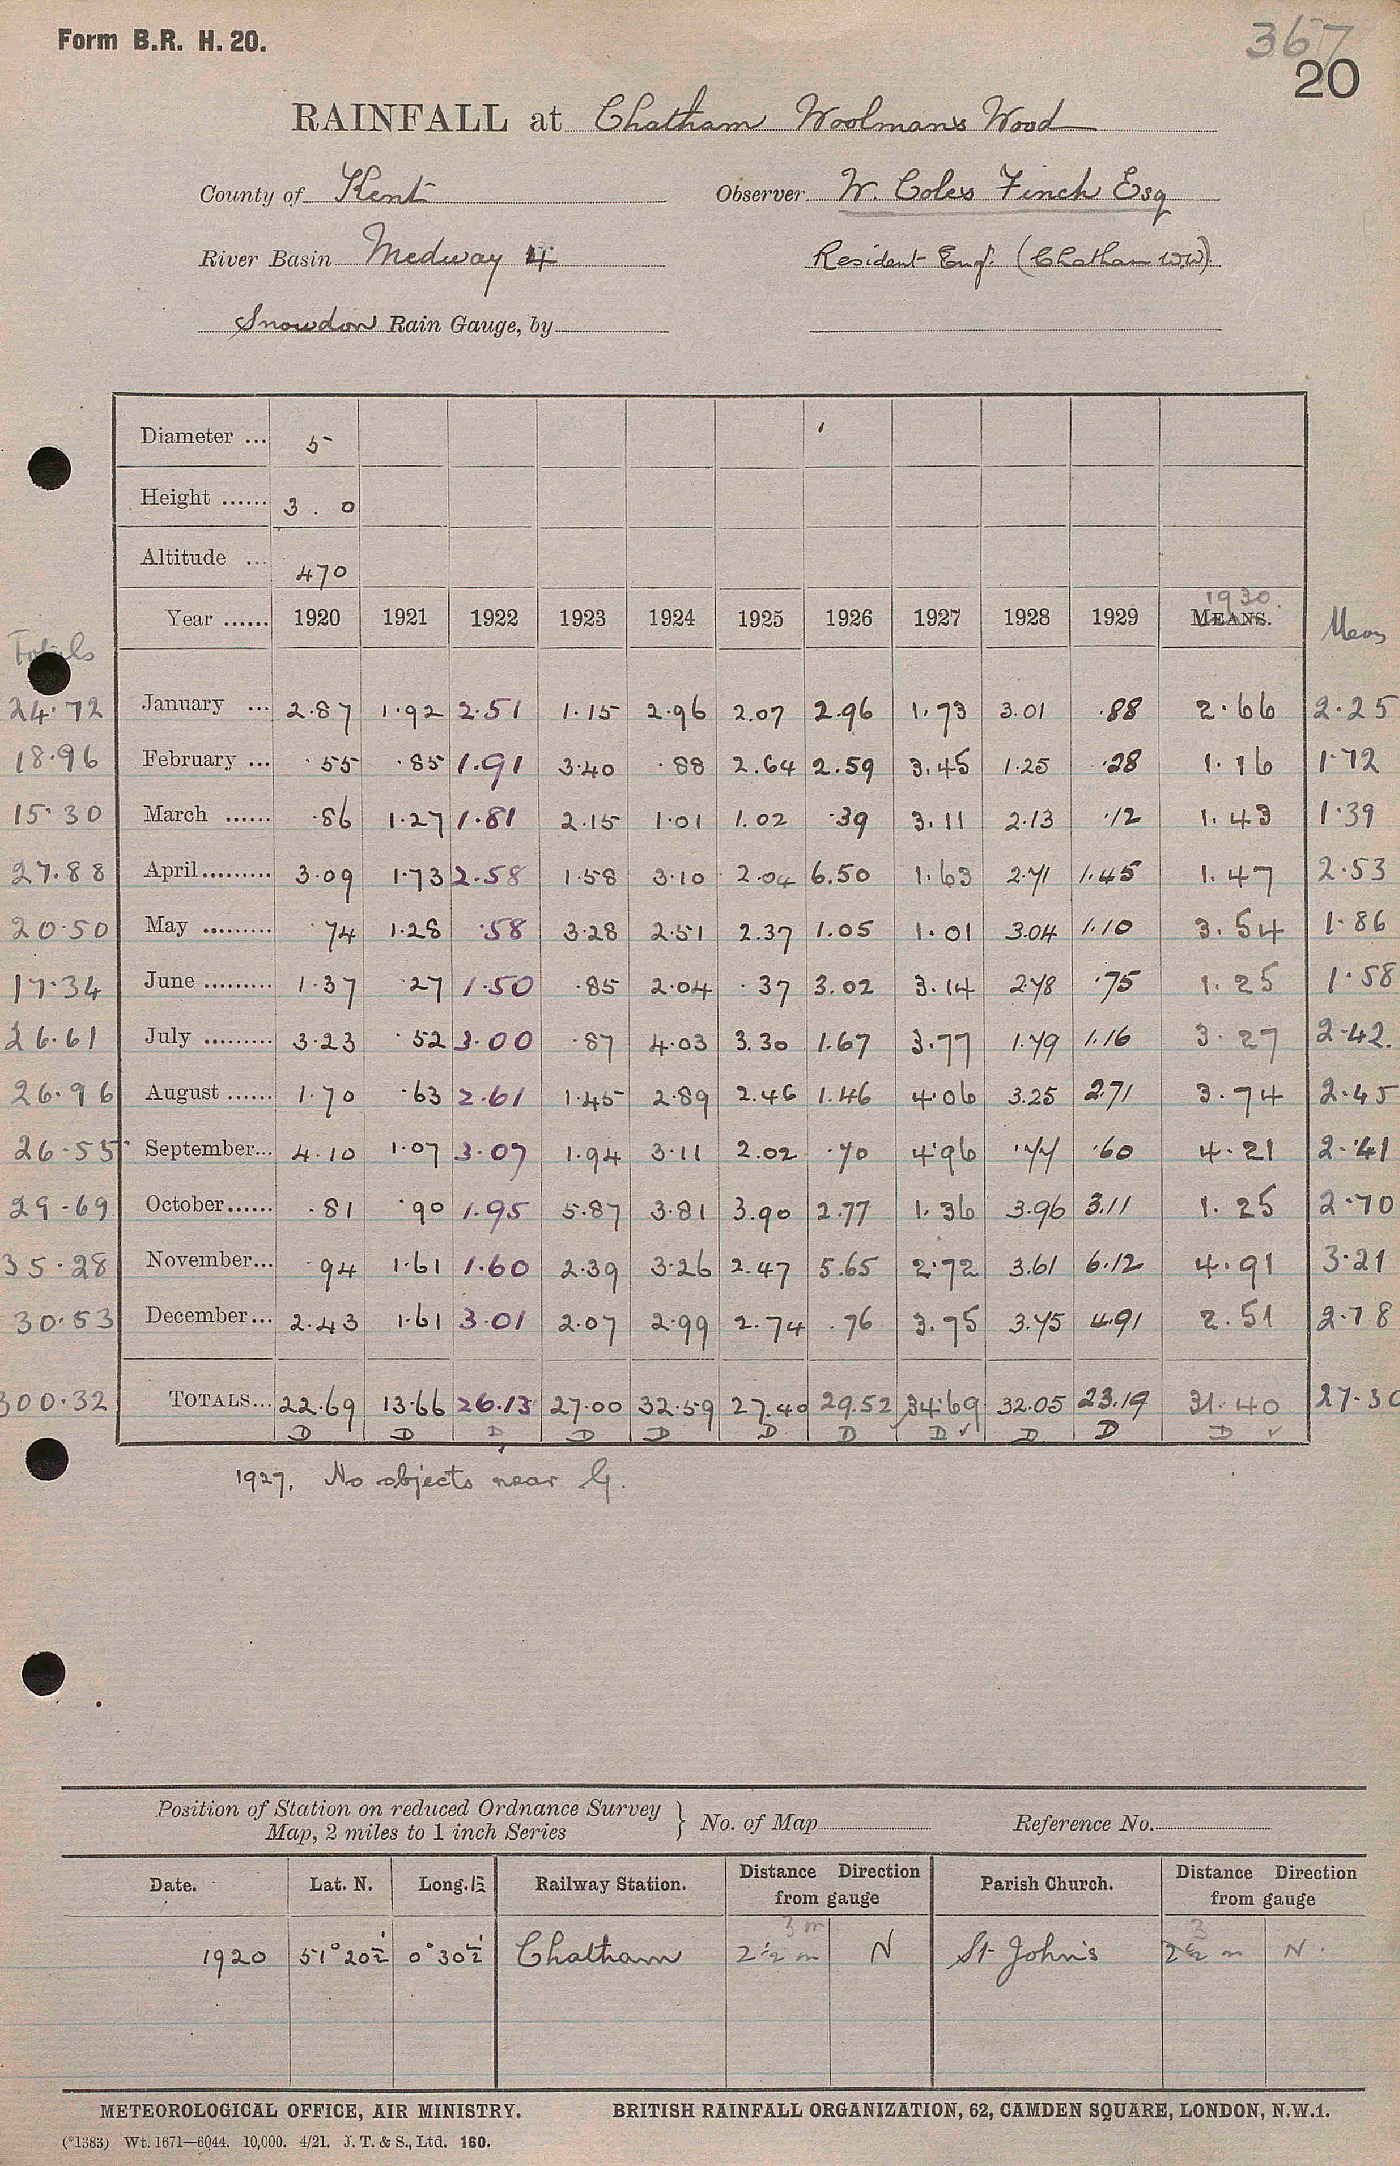 Form B.R. H. 20.
367
20
RAINFALL at Chatham Woolmans Wood
County of Kent Observer W. Coles Finch Esq
River Basin Medway 4 Resident Engr. (Chatham WW)
Snowdon Rain Gauge, by
Diameter ... 5
Height ...... 3 . 0
Altitude ... 470
1930.
Totals Year ...... 1920 1921 1922 1923 1924 1925 1926 1927 1928 1929 MEANS. Mean
24.72 January ... 2.87 1.92 2.51 1.15 2.96 2.07 2.96 1.73 3.01 .88 2.66 2.25
18.96 February ... .55 .85 1.91 3.40 .88 2.64 2.59 3.45 1.25 .28 1.16 1.72
15.30 March ...... .86 1.27 1.81 2.15 1.01 1.02 .39 3.11 2.13 .12 1.43 1.39
27.88 April......... 3.09 1.73 2.58 1.58 3.10 2.04 6.50 1.63 2.71 1.45 1.47 2.53
20.50 May ......... .74 1.28 .58 3.28 2.51 2.37 1.05 1.01 3.04 1.10 3.54 1.86
17.34 June ......... 1.37 .27 1.50 .85 2.04 .37 3.02 3.14 2.78 .75 1.25 1.58
26.61 July ......... 3.23 .52 3.00 .87 4.03 3.30 1.67 3.77 1.79 1.16 3.27 2.42.
26.96 August ...... 1.70 .63 2.61 1.45 2.89 2.46 1.46 4.06 3.25 2.71 3.74 2.45
26.55 September... 4.10 1.07 3.07 1.94 3.11 2.02 .70 4.96 .77 .60 4.21 2.41
29.69 October...... .81 .90 1.95 5.87 3.81 3.90 2.77 1.36 3.96 3.11 1.25 2.70
35.28 November... .94 1.61 1.60 2.39 3.26 2.47 5.65 2.72 3.61 6.12 4.91 3.21
30.53 December... 2.43 1.61 3.01 2.07 2.99 2.74 .76 3.75 3.75 4.91 2.51 2.78
300.32 TOTALS... 22.69 13.66 26.13 27.00 32.59 27.40 29.52 34.69 32.05 23.19 31.40 27.30
D D D D D D D D ✓ D D D ✓
1927. No objects near G.
Position of Station on reduced Ordnance Survey
Map, 2 miles to 1 inch Series } No. of Map Reference No.
Date. Lat. N. Long. E Railway Station. Distance Direction from gauge Parish Church. Distance Direction from gauge
3 m 3
1920 51° 20½' 0° 30½' Chatham 2½ m N St John's 2½ m N.
METEOROLOGICAL OFFICE, AIR MINISTRY. BRITISH RAINFALL ORGANIZATION, 62, CAMDEN SQUARE, LONDON, N.W.1.
(*1383) Wt. 1671—6044. 10,000. 4/21. J. T. & S., Ltd. 160.